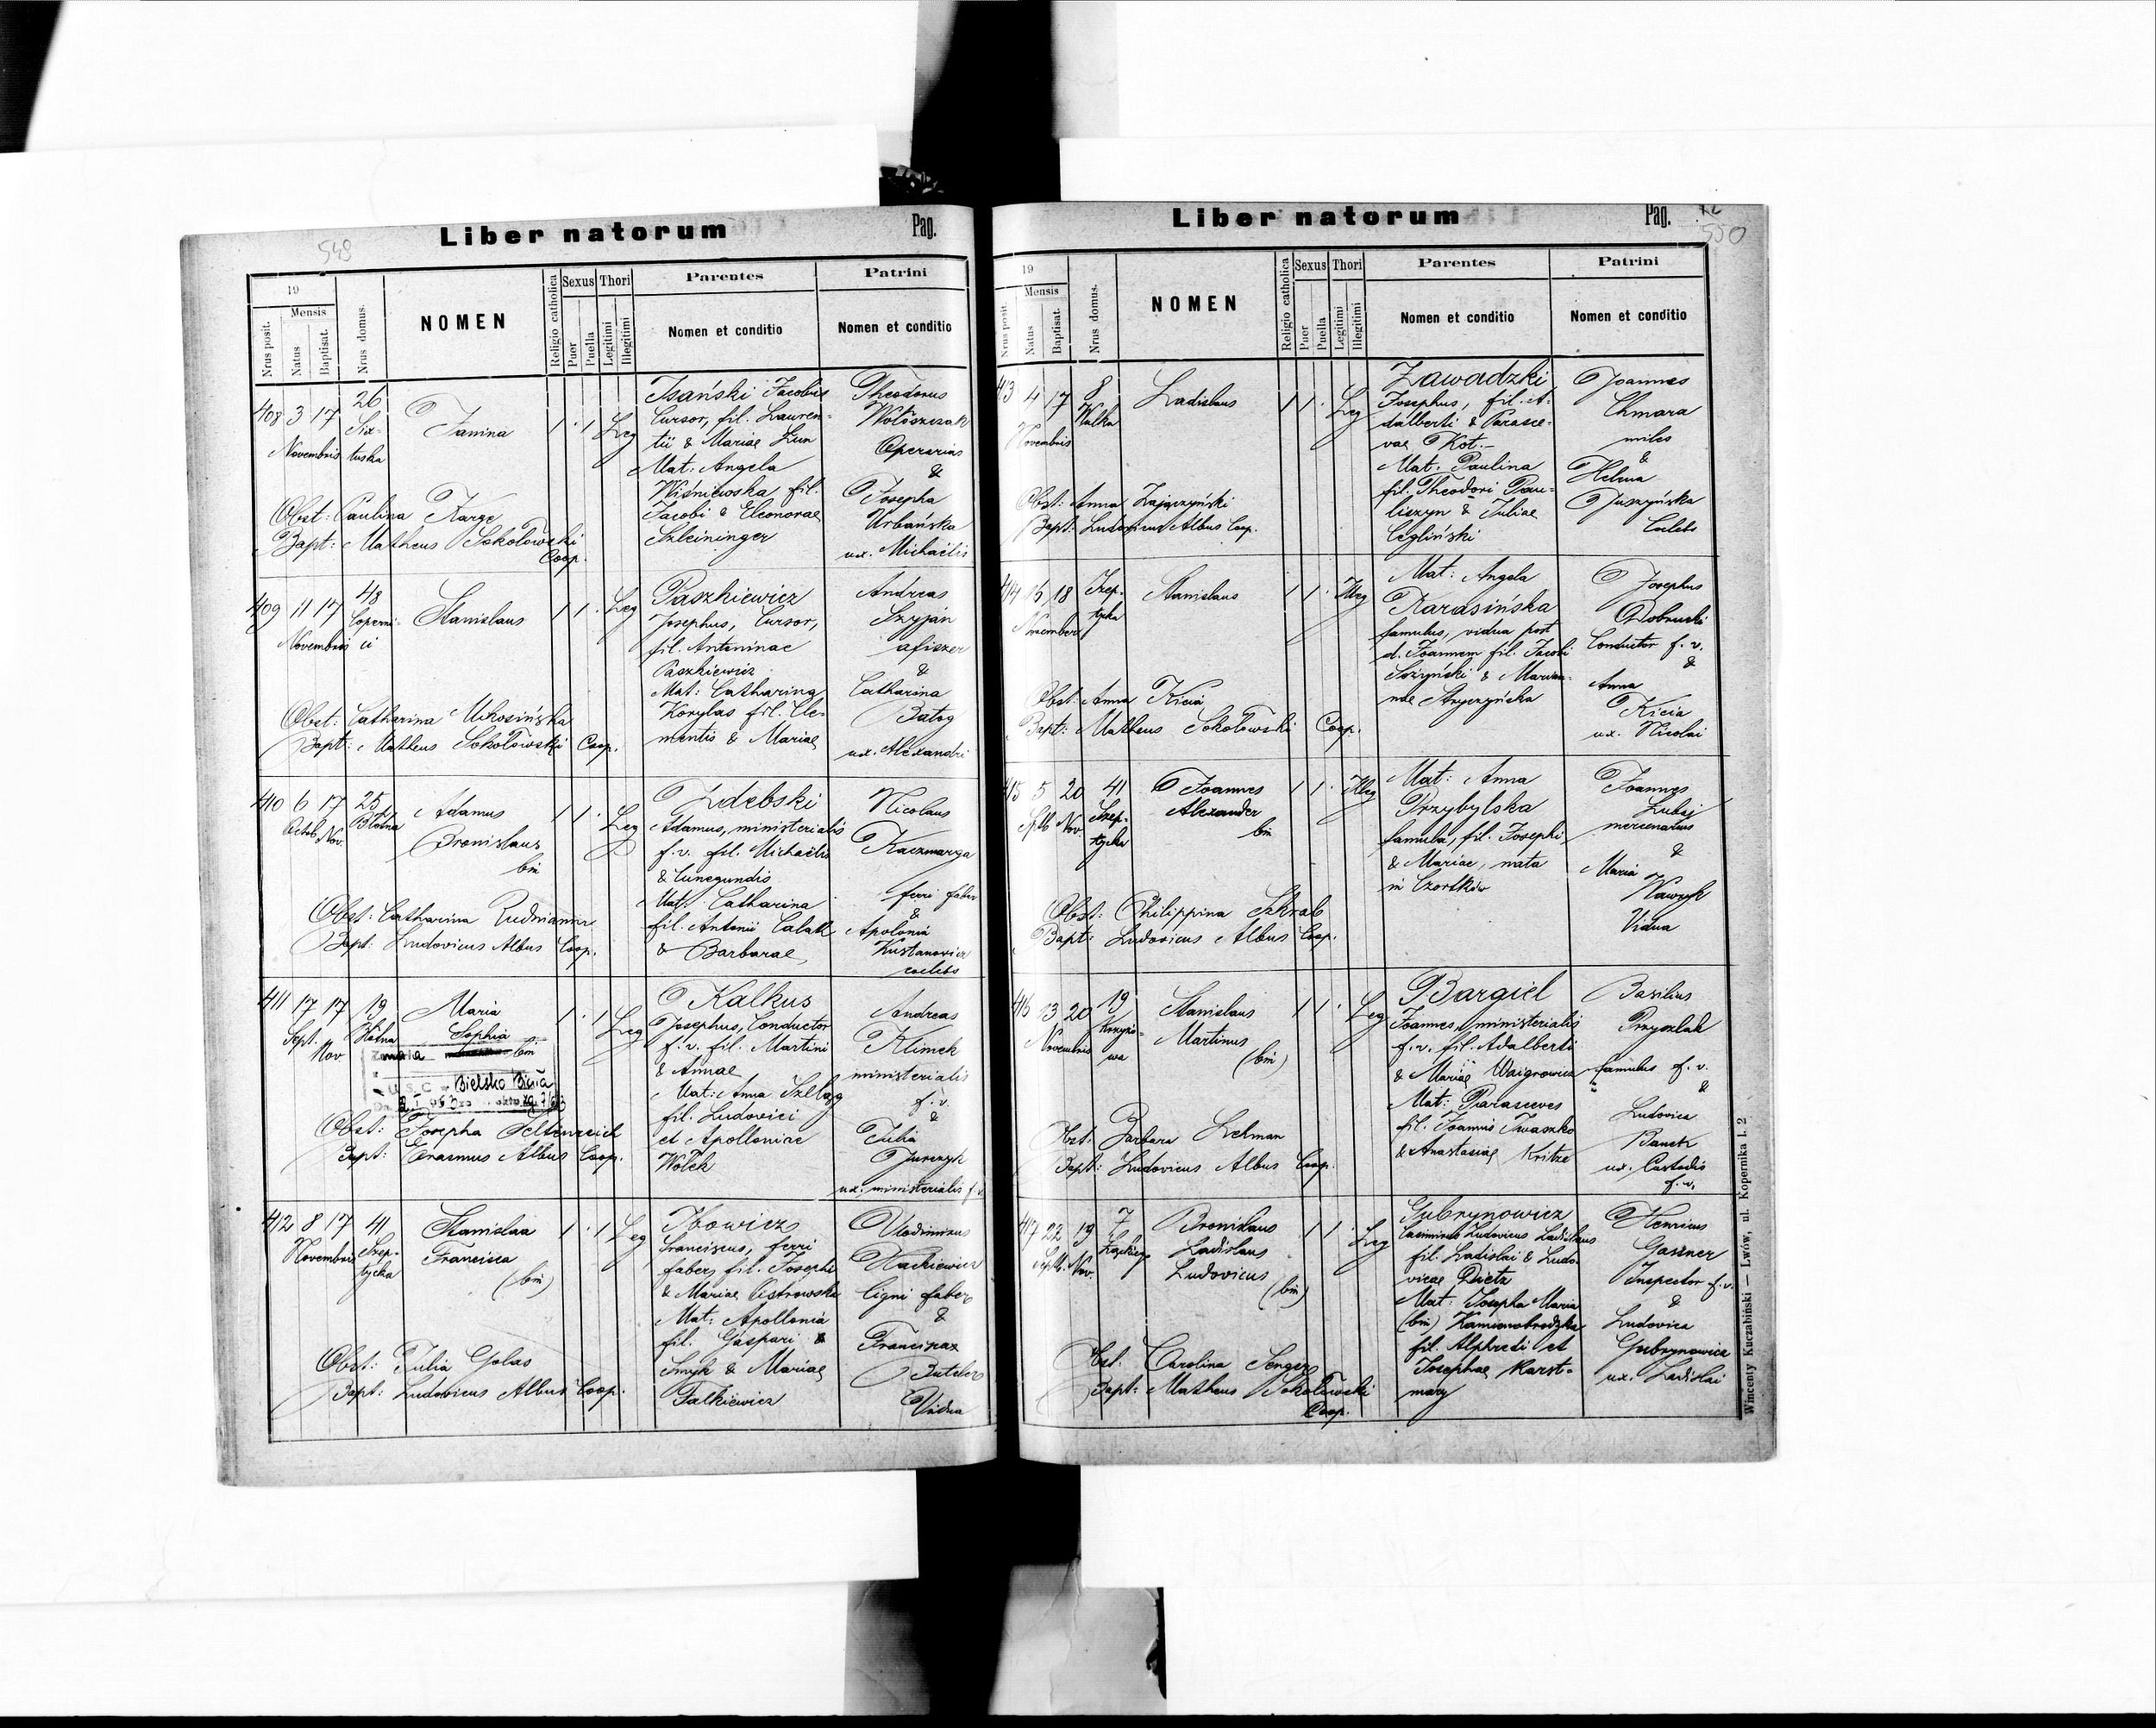 549
Liber natorum
Pag.
19
Mensis
Nrus posit.
Natus
Baptisat.
Nrus domus.
NOMEN
Religio catholica
Sexus
Puer
Puella
Thori
Legitimi
Illegitimi
Parentes
Nomen et conditio
Patrini
Nomen et conditio
408 3 17 26
Novembris
Six-
tuska
Janina
1 · 1 Leg
Isański Jacobus
Cursor, fil. Lauren-
tii & Mariae Lun
Mat: Angela
Wiśniewska fil.
Jacobi & Eleonorae
Szleininger
Theodorus
Wołoszczak
Operarius
&
Josepha
Urbańska
ux. Michaëlis
Obst: Paulina Karge
Bapt: Matheus Sokołowski
Coop.
409 11 17 48
Novembris
Coperni-
ci
Stanislaus
1 1 · Leg
Paszkiewicz
Josephus, Cursor,
fil. Antoninae
Paszkiewicz
Mat: Catharina
Korylas fil. Cle-
mentis & Mariae
Andreas
Szyjan
afiszer
&
Catharina
Batog
ux. Alexandri
Obst: Catharina Mikosińska
Bapt: Matheus Sokołowski Coop.
410 6 17 25
Octob. Nov. Błotna
Adamus
Bronislaus
bin
1 1 · Leg
Zdebski
Adamus, ministerialis
f.v. fil. Michaëlis
& Cunegundis
Mat: Catharina
fil. Antonii Calak
& Barbarae
Nicolaus
Kaczmarga
ferri faber
&
Apolonia
Kustanowicz
coelebs
Obst: Catharina Rudnianin
Bapt: Ludovicus Albus Coop.
411 17 17 19
Sept. Nov Błotna
Maria
Sophia
bin
1 · 1 Leg
Kalkus
Josephus, Conductor
f.v. fil. Martini
& Annae
Mat: Anna Szeląg
fil. Ludovici
et Apolloniae
Wołek
Andreas
Klimek
ministerialis
f.v.
&
Julia
Jurczyk
ux. ministerialis f.v.
U S C Bielsko Biała
Obst: Josepha Seltenreich
Bapt: Erasmus Albus Coop.
412 8 17 41
Novembris
Szep-
tycka
Stanislaa
Francisca
(bin)
1 · 1 Leg
Ibowicz
Franciscus, ferri
faber, fil. Josephi
& Mariae Ostrowska
Mat: Apollonia
fil. Gaspari &
Smyk & Mariae
Falkiewicz
Vlodimirus
Mackiewicz
ligni faber
&
Francisca
Buteler
Vidua
Obst: Julia Golas
Bapt: Ludovicus Albus Coop.
Liber natorum
Pag.
550
19
Mensis
Nrus posit.
Natus
Baptisat.
Nrus domus.
NOMEN
Religio catholica
Sexus
Puer
Puella
Thori
Legitimi
Illegitimi
Parentes
Nomen et conditio
Patrini
Nomen et conditio
413 4 17 8
Novembris
Wulka
Ladislaus
1 1 · Leg
Zawadzki
Josephus, fil. A-
dalberti & Parasce-
vae Kot.
Mat. Paulina
fil. Theodori Pau-
liszyn & Juliae
Cegliński
Joannes
Chmara
miles
&
Helena
Juszyńska
Coelebs
Obst: Anna Zajączyński
Bapt: Ludovicus Albus Coop.
414 15 18
Novembr
Szep-
tycka
Stanislaus
1 1 · Illeg
Mat: Angela
Karasińska
famulus, vidua post
d. Joannem fil. Jacobi
& Marian-
nae
Josephus
Dobrucki
Conductor f.v.
&
Anna
Kicia
ux. Nicolai
Obst: Anna Kicia
Bapt: Matheus Sokołowski Coop.
415 5 20 41
Sptb Nov.
Szep-
tycka
Joannes
Alexander
bin
1 1 · Illeg
Mat: Anna
Przybylska
famula, fil. Josephi
& Mariae, nata
in Czortków
Joannes
Lubaj
mercenarius
&
Maria
Wawryk
Vidua
Obst: Philippina Szkrab
Bapt: Ludovicus Albus Coop.
416 13 20 19
Novembris
Krzyżo-
wa
Stanislaus
Martinus
(bin)
1 1 · Leg
Bargiel
Joannes, ministerialis
f.v. fil. Adalberti
& Mariae Waigrowicz
Mat: Parasceves
fil. Joannis Iwaszko
& Anastasiae Kritze
Basilius
Przyszlak
famulus f.v.
&
Ludovica
Banek
ux. Custodis
f.v.
Obst. Barbara Lehman
Bapt: Ludovicus Albus Coop.
417 22 19 7
Septb. Nov.
Bronislaus
Ladislaus
Ludovicus
(bin)
1 1 · Leg
Gubrynowicz
Casimirus Ludovicus Ladislaus
fil. Ladislai & Ludo-
vicae Dietz
Mat: Josepha Maria
(bin) Kamionobrodzka
fil. Alphredi et
Josephae Karst-
mary
Henricus
Gassner
Inspector f.v.
&
Ludovica
Gubrynowicz
ux. Ladislai
Obst. Carolina Senger
Bapt: Matheus Sokołowski
Coop.
Wincenty Kuczabiński — Lwów, ul. Kopernika l. 2